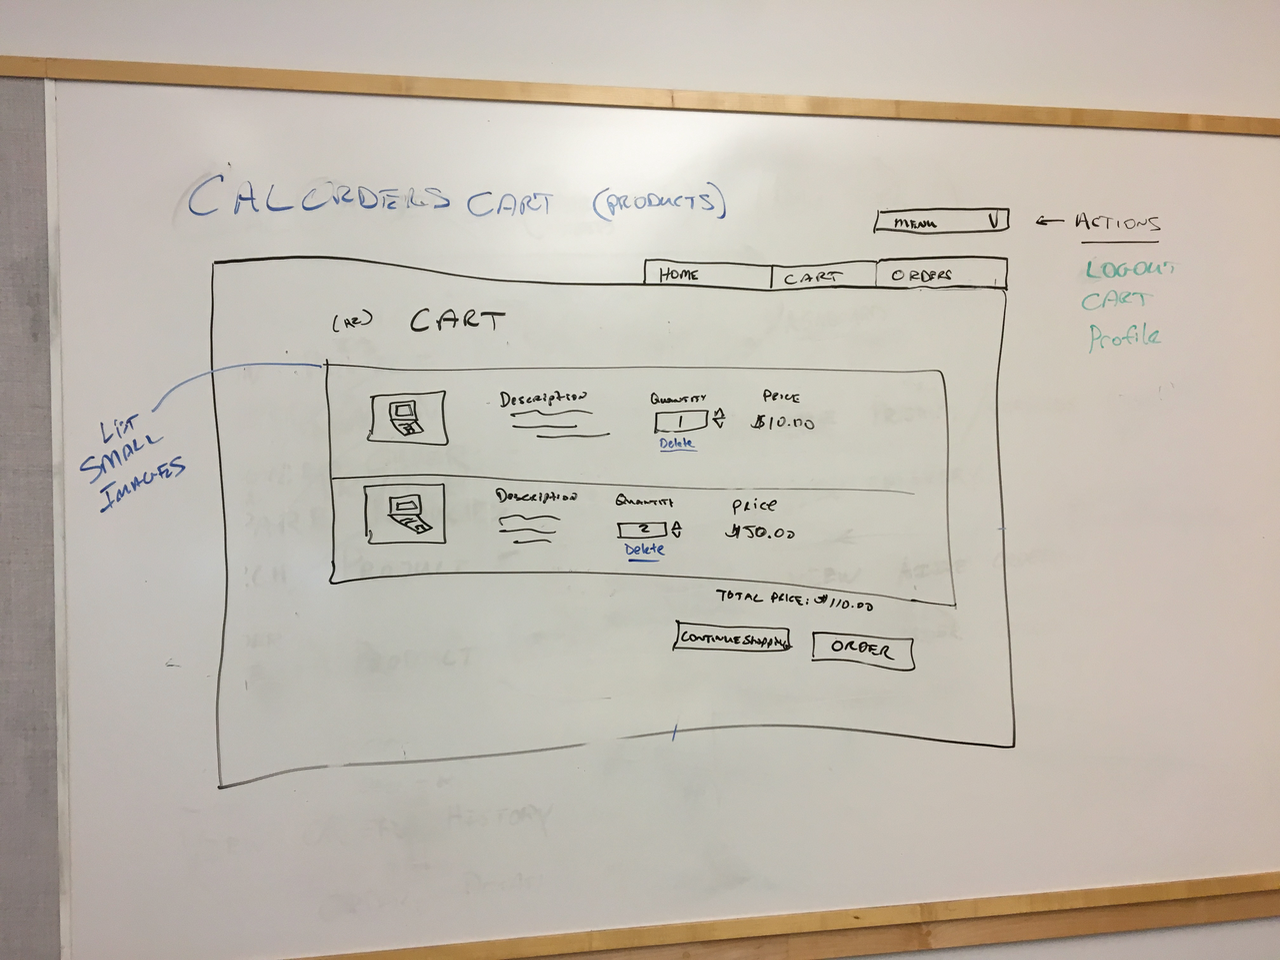 CALORDERS CART (PRODUCTS)
MENU V ← ACTIONS
LOGOUT
CART
Profile
HOME CART ORDERS
(H2) CART
LIST
SMALL
IMAGES
Description QUANTITY PRICE
1 $10.00
Delete
Description QUANTITY PRICE
2 $50.00
Delete
TOTAL PRICE: $110.00
CONTINUE SHOPPING ORDER
HISTORY